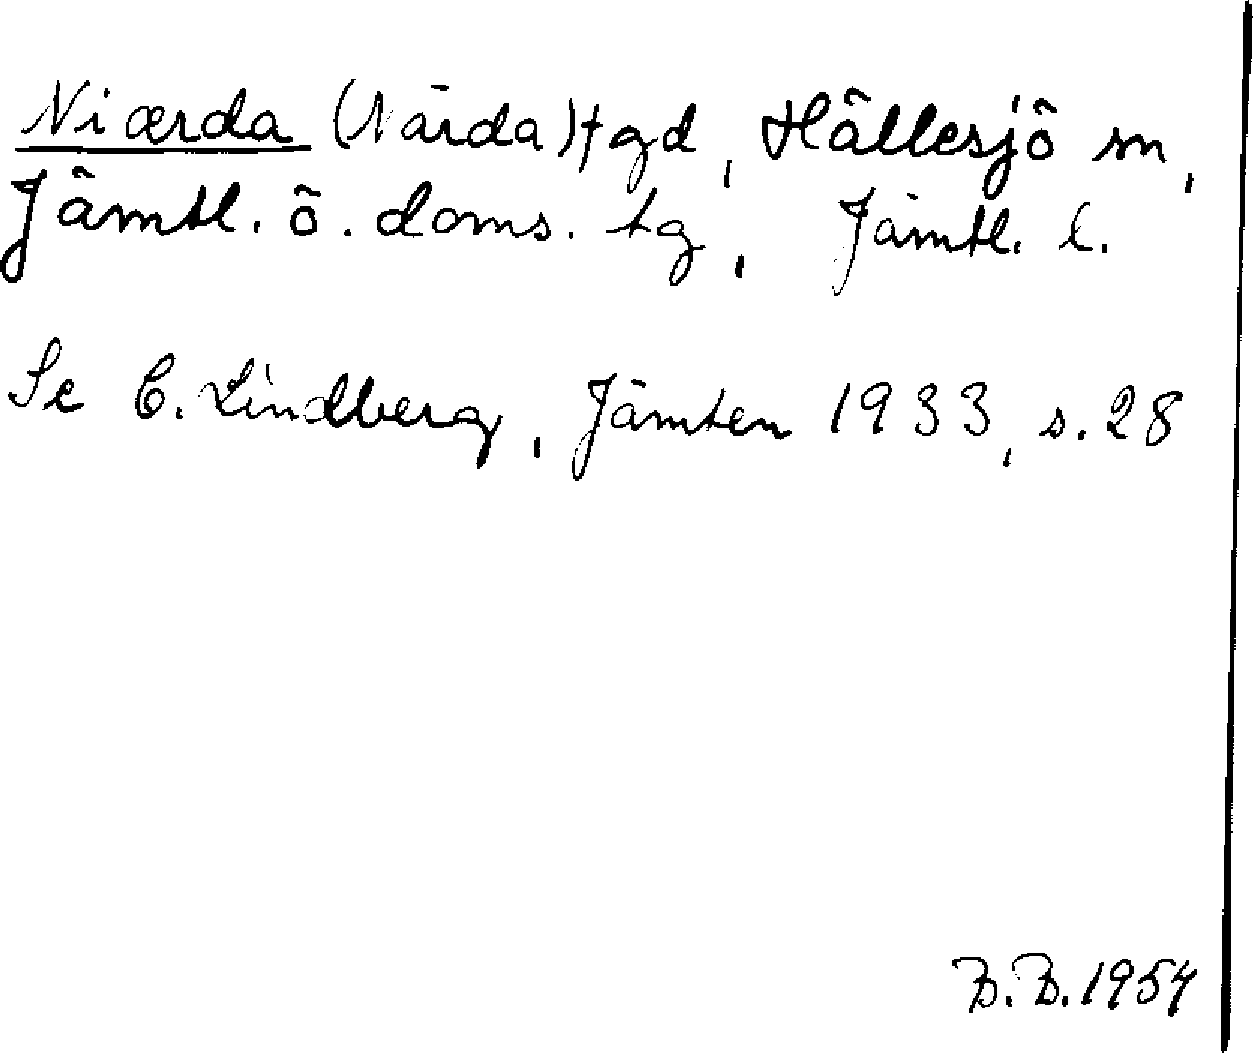 Niærda (Närda)† gd, Hällesjö sn,
Jämtl. ö. doms. tg, Jämtl. l.
Se C. Lindberg, Jämten 1933, s. 28
B.B. 1954